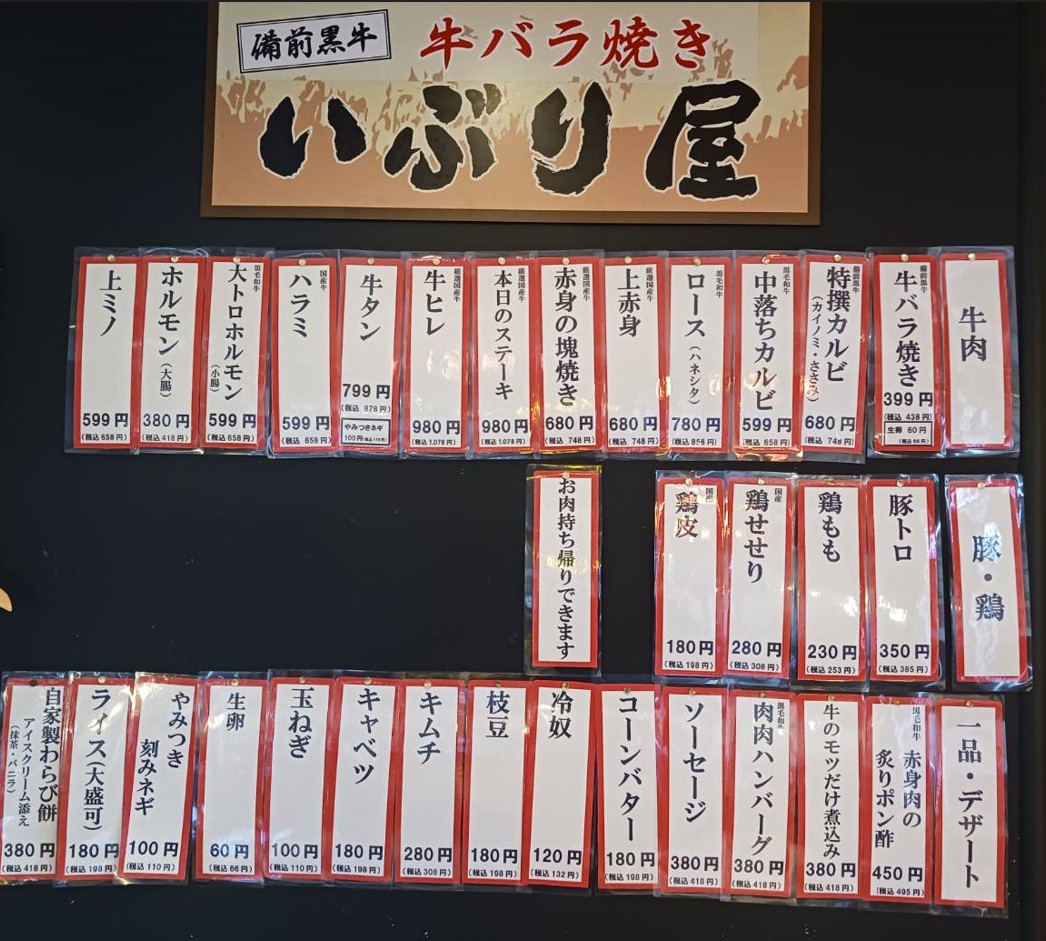 備前黒牛
牛バラ焼き
いぶり屋
牛肉
備前黒牛
牛バラ焼き
399円
(税込 438円)
生卵 60円
(税込 66円)
備前黒牛
特撰カルビ
(カイノミ・ささみ)
680円
(税込 748円)
黒毛和牛
中落ちカルビ
599円
(税込 658円)
黒毛和牛
ロース(ハネシタ)
780円
(税込 858円)
厳選国産牛
上赤身
680円
(税込 748円)
厳選国産牛
赤身の塊焼き
680円
(税込 748円)
厳選国産牛
本日のステーキ
980円
(税込 1,078円)
厳選国産牛
牛ヒレ
980円
(税込 1,078円)
牛タン
799円
(税込 878円)
やみつきネギ
100円(税込110円)
国産牛
ハラミ
599円
(税込 658円)
黒毛和牛
大トロホルモン
(小腸)
599円
(税込 658円)
ホルモン(大腸)
380円
(税込 418円)
上ミノ
599円
(税込 658円)
豚・鶏
豚トロ
350円
(税込 385円)
鶏もも
230円
(税込 253円)
国産
鶏せせり
280円
(税込 308円)
国産
鶏皮
180円
(税込 198円)
お肉持ち帰りできます
一品・デザート
黒毛和牛
赤身肉の
炙りポン酢
450円
(税込 495円)
牛のモツだけ煮込み
380円
(税込 418円)
黒毛和牛
肉肉ハンバーグ
380円
(税込 418円)
ソーセージ
380円
(税込 418円)
コーンバター
180円
(税込 198円)
冷奴
120円
(税込 132円)
枝豆
180円
(税込 198円)
キムチ
280円
(税込 308円)
キャベツ
180円
(税込 198円)
玉ねぎ
100円
(税込 110円)
生卵
60円
(税込 66円)
やみつき
刻みネギ
100円
(税込 110円)
ライス(大盛可)
180円
(税込 198円)
自家製わらび餅
アイスクリーム添え
(抹茶・バニラ)
380円
(税込 418円)